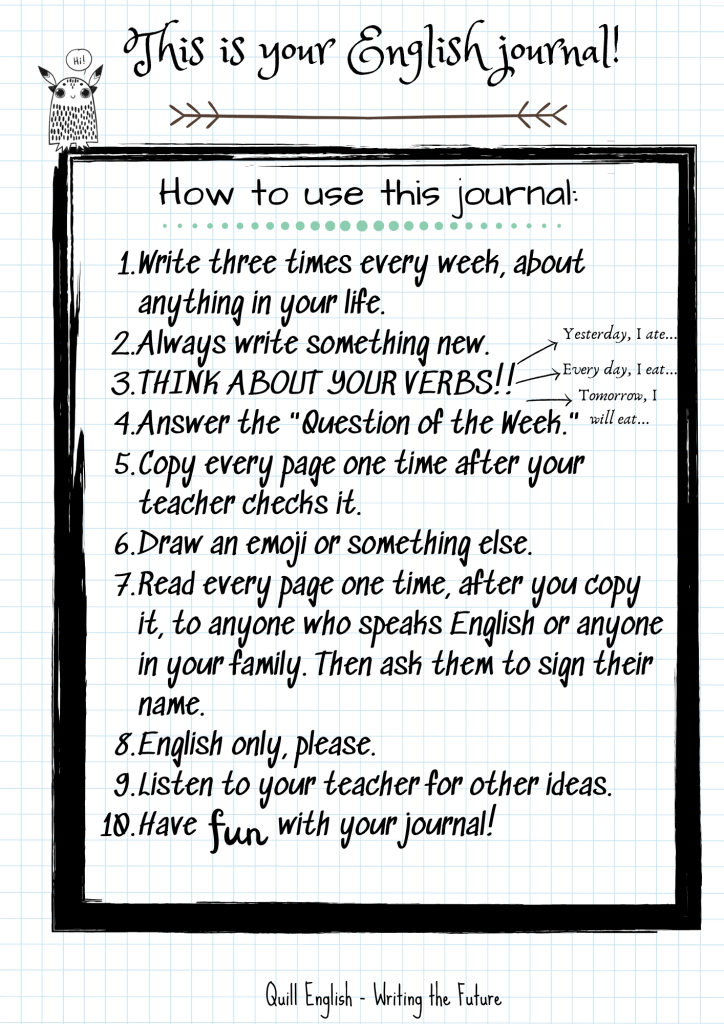 This is your English journal!
Hi!
How to use this journal:
1. Write three times every week, about
anything in your life.
2. Always write something new.
3. THINK ABOUT YOUR VERBS!!
Yesterday, I ate...
Every day, I eat...
Tomorrow, I
will eat...
4. Answer the "Question of the Week."
5. Copy every page one time after your
teacher checks it.
6. Draw an emoji or something else.
7. Read every page one time, after you copy
it, to anyone who speaks English or anyone
in your family. Then ask them to sign their
name.
8. English only, please.
9. Listen to your teacher for other ideas.
10. Have fun with your journal!
Quill English - Writing the Future